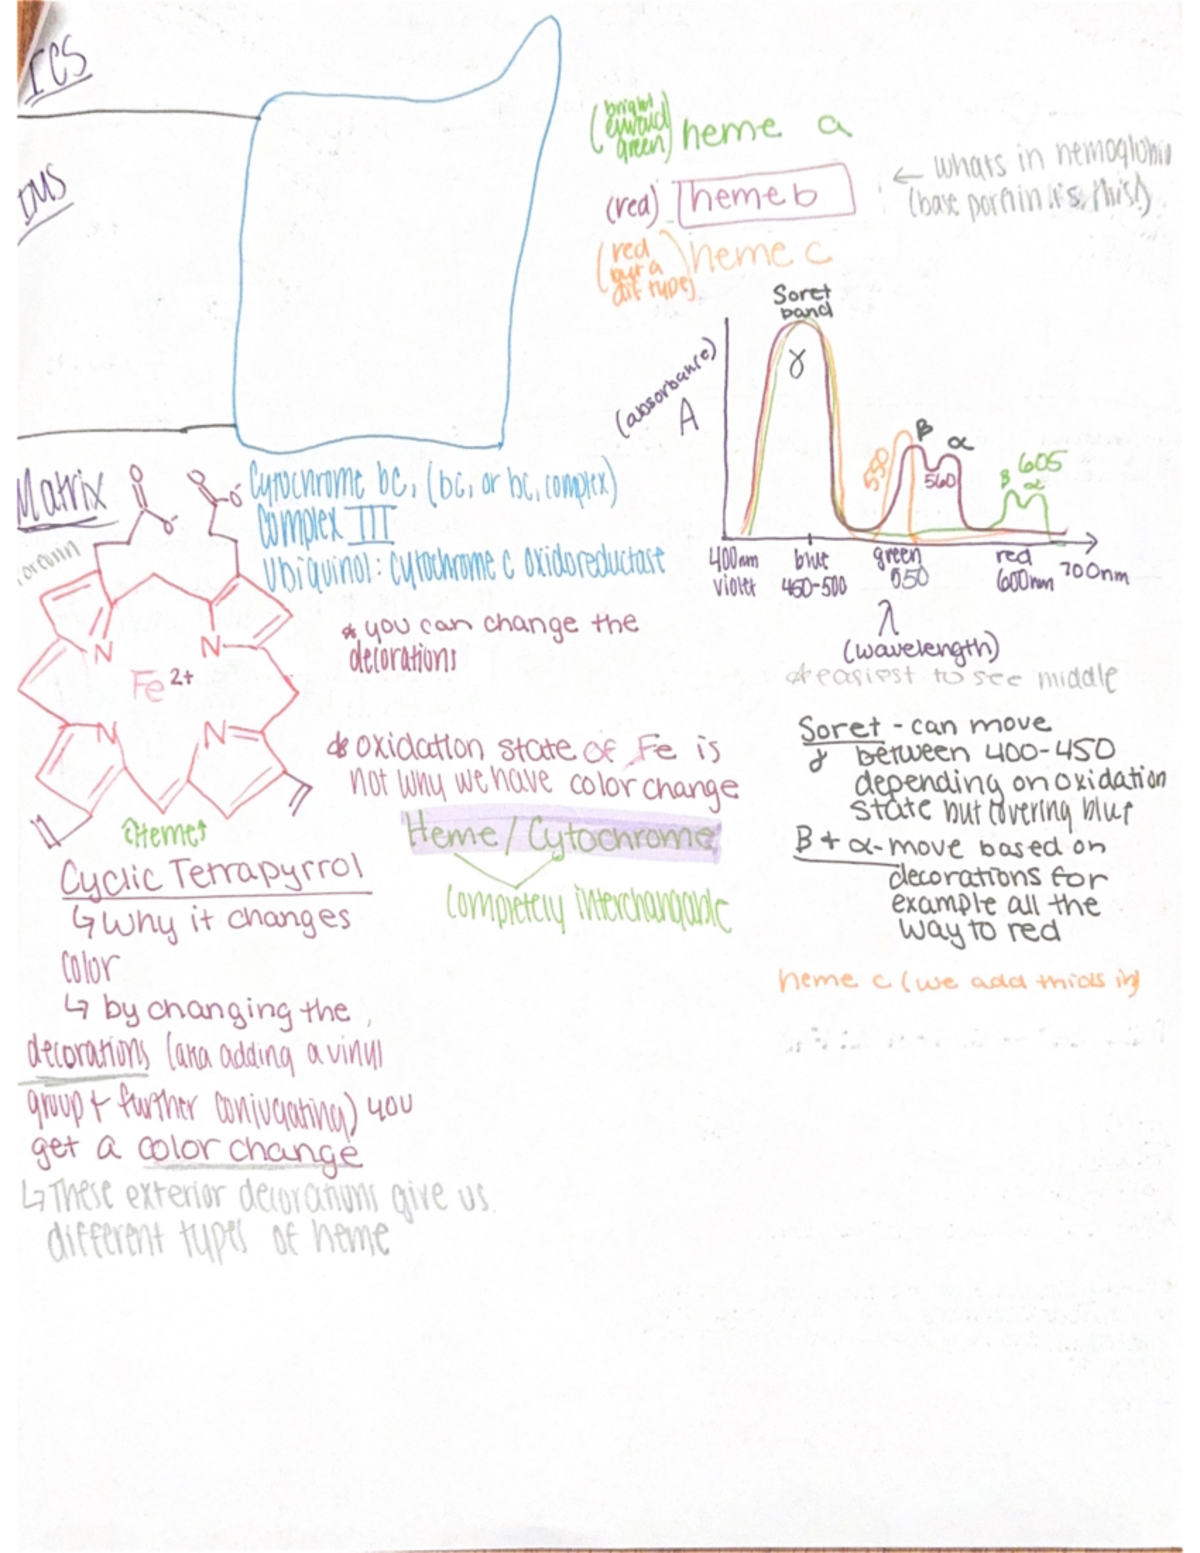 ICS
IMS
Matrix
(bright
emerald
green) heme a
(red) heme b
← whats in hemoglobin
(base porphin is this!)
(red
but a
dif type) heme c
Soret
band
γ
(absorbance)
A
550
β
α
560
β α
605
400nm
violet
blue
450-500
green
550
red
600nm
700nm
λ
(wavelength)
*easiest to see middle
O
O-
O
O-
Cytochrome bc, (bc, or bc, complex)
Complex III
Ubiquinol: cytochrome c oxidoreductase
N
N
Fe 2+
N
N
↑Heme↑
* you can change the
decorations
* oxidation state of Fe is
not why we have color change
Heme / Cytochrome
Completely interchangable
Cyclic Tetrapyrrol
↳ Why it changes
color
↳ by changing the
decorations (aka adding a vinyl
group + further conjugating) you
get a color change
↳ These exterior decorations give us
different types of heme
Soret - can move
γ between 400-450
depending on oxidation
state but covering blue
B + α - move based on
decorations for
example all the
way to red
heme c (we add thiols in)